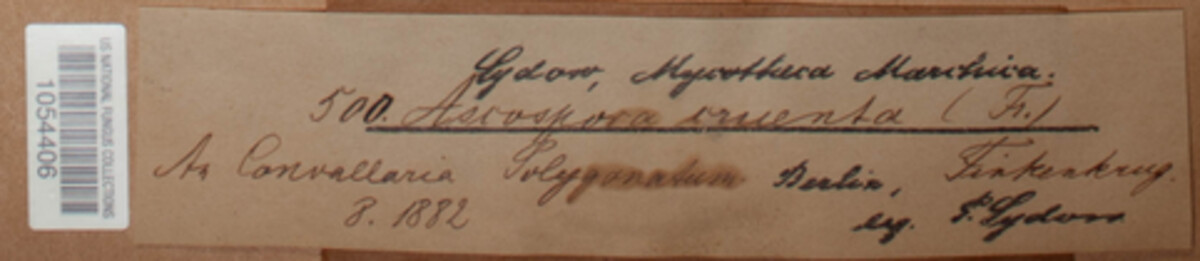 US NATIONAL FUNGUS COLLECTIONS
1054406
Sydow, Mycotheca Marchica.
500. Ascospora cruenta (Fr.)
An Convallaria Polygonatum Berlin, Finkenkrug.
8. 1882
leg. P. Sydow